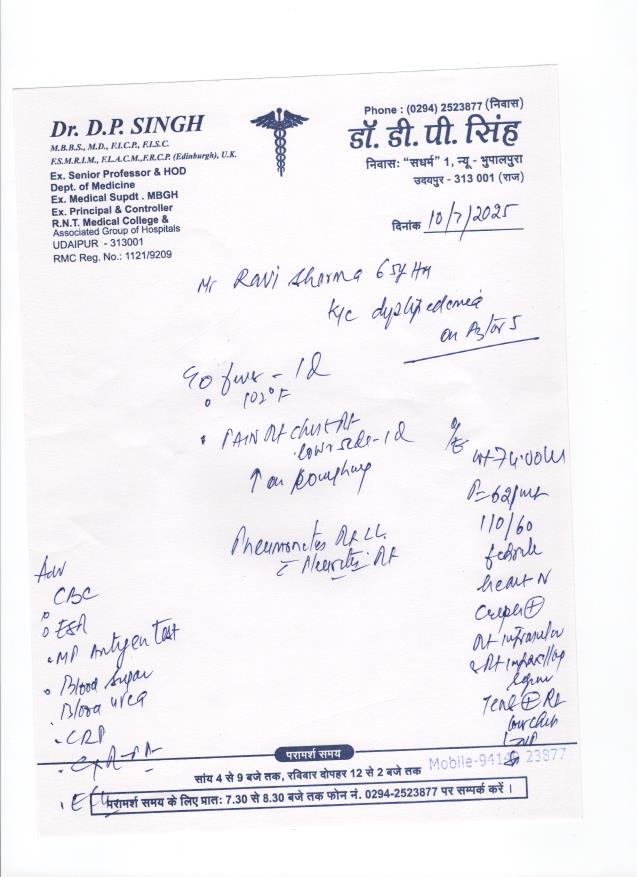 Dr. D.P. SINGH
M.B.B.S., M.D., F.I.C.P., F.I.S.C.
F.S.M.R.I.M., F.L.A.C.M., F.R.C.P. (Edinburgh), U.K.
Ex. Senior Professor & HOD
Dept. of Medicine
Ex. Medical Supdt . MBGH
Ex. Principal & Controller
R.N.T. Medical College &
Associated Group of Hospitals
UDAIPUR - 313001
RMC Reg. No.: 1121/9209
Phone : (0294) 2523877 (निवास)
डॉ. डी. पी. सिंह
निवास: "सधर्म" 1, न्यू - भुपालपुरा
उदयपुर - 313 001 (राज)
दिनांक 10/7/2025
Mr Ravi Sharma 65y
K/c dyslipedemia
on
fever - 1D
102°F
PAIN Rt chest Rt
lower side - 1D
↑ on coughing
O/E
wt 74.00
P=62/mt
110/60
febrile
heart N
Creps ⊕
Rt
& Rt
⊕ Rt
Pneumonitis Rt LL
Rt
Adv
CBC
ESR
MP Antigen test
Blood sugar
Blood urea
CRP
CXR-PA
ECG
परामर्श समय
सांय 4 से 9 बजे तक, रविवार दोपहर 12 से 2 बजे तक
Mobile-941 23877
परामर्श समय के लिए प्रात: 7.30 से 8.30 बजे तक फोन नं. 0294-2523877 पर सम्पर्क करें ।